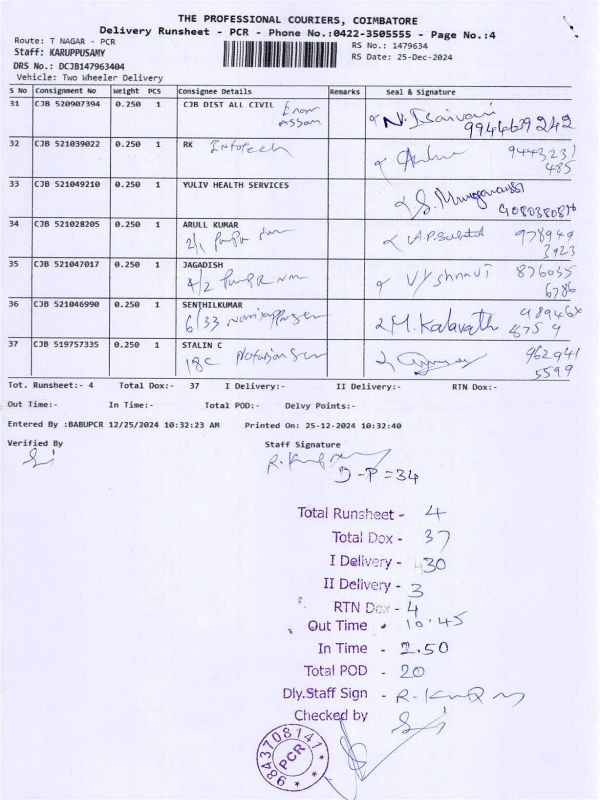 THE PROFESSIONAL COURIERS, COIMBATORE
Delivery Runsheet - PCR - Phone No.:0422-3505555 - Page No.:4
Route: T NAGAR - PCR
RS No.: 1479634
Staff: KARUPPUSAMY
RS Date: 25-Dec-2024
DRS No.: DCJB147963404
Vehicle: Two Wheeler Delivery
S No Consignment No Weight PCS Consignee Details Remarks Seal & Signature
31 CJB 520907394 0.250 1 CJB DIST ALL CIVIL
9944639242
32 CJB 521039022 0.250 1 RK Infotech
9443231
485
33 CJB 521049210 0.250 1 YULIV HEALTH SERVICES
34 CJB 521028205 0.250 1 ARULL KUMAR
2/1
978949
3923
35 CJB 521047017 0.250 1 JAGADISH
4/2
Vyshnavi 876035
6786
36 CJB 521046990 0.250 1 SENTHILKUMAR
6/33
M. Kalavathi
37 CJB 519757335 0.250 1 STALIN C
18C
962941
5599
Tot. Runsheet:- 4 Total Dox:- 37 I Delivery:- II Delivery:- RTN Dox:-
Out Time:- In Time:- Total POD:- Delvy Points:-
Entered By :BABUPCR 12/25/2024 10:32:23 AM Printed On: 25-12-2024 10:32:40
Verified By Staff Signature
D-P = 34
Total Runsheet - 4
Total Dox - 37
I Delivery - 30
II Delivery - 3
RTN Dox - 4
Out Time - 10.45
In Time - 2.50
Total POD - 20
Dly.Staff Sign -
Checked by
9843708141
PCR